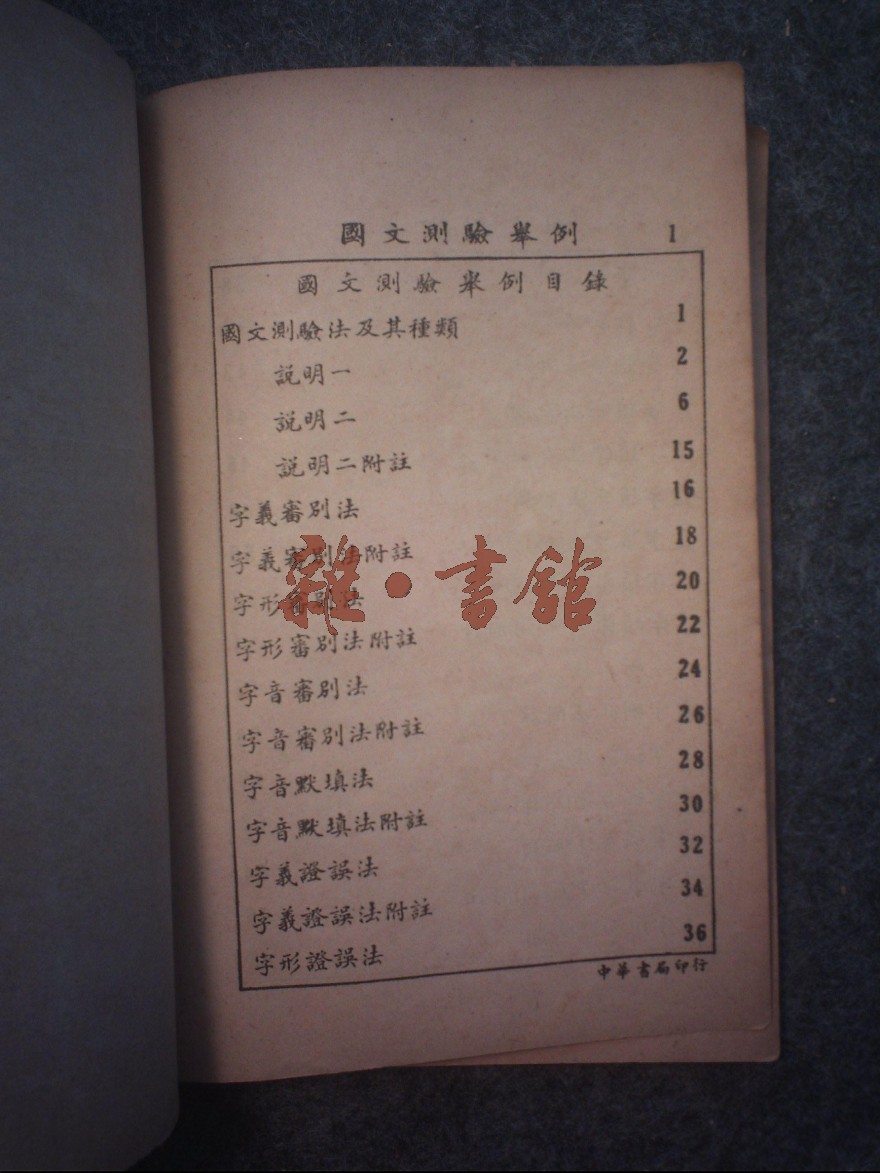 國文測驗舉例 1
國文測驗舉例目錄
國文測驗法及其種類 1
說明一 2
說明二 6
說明二附註 15
字義審別法 16
字義審別法附註 18
雜·書館
字形審別法 20
字形審別法附註 22
字音審別法 24
字音審別法附註 26
字音默填法 28
字音默填法附註 30
字義證誤法 32
字義證誤法附註 34
字形證誤法 36
中華書局印行